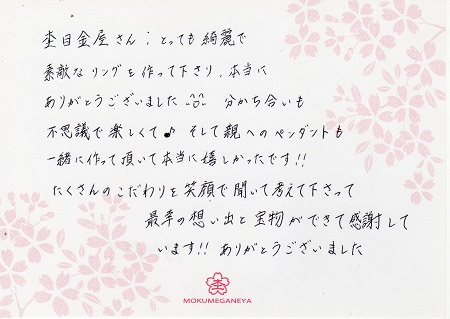 杢目金屋さん：とっても綺麗で
素敵なリングを作って下さり、本当に
ありがとうございました ¨̮ 分かち合いも
不思議で楽しくて♪ そして親へのペンダントも
一緒に作って頂いて本当に嬉しかったです!!
たくさんのこだわりを笑顔で聞いて考えて下さって
最幸の想い出と宝物ができて感謝して
います!! ありがとうございました
MOKUMEGANEYA